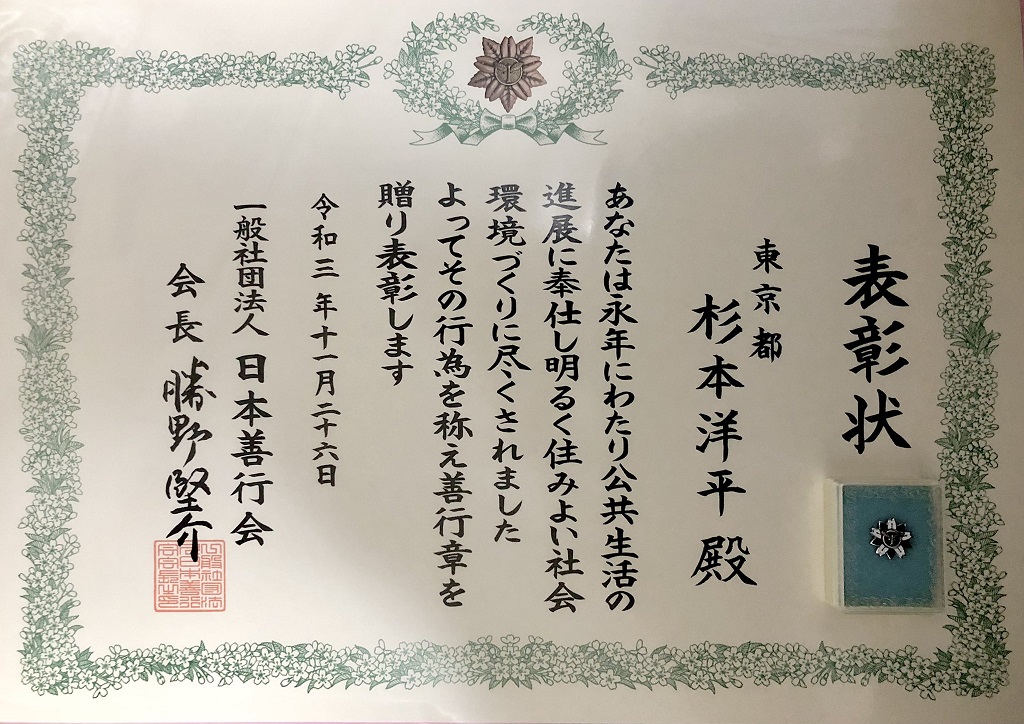 表彰状
東京都
杉本洋平殿
あなたは永年にわたり公共生活の
進展に奉仕し明るく住みよい社会
環境づくりに尽くされました
よってその行為を称え善行章を
贈り表彰します
令和三年十一月二十六日
一般社団法人 日本善行会
会長 勝野堅介